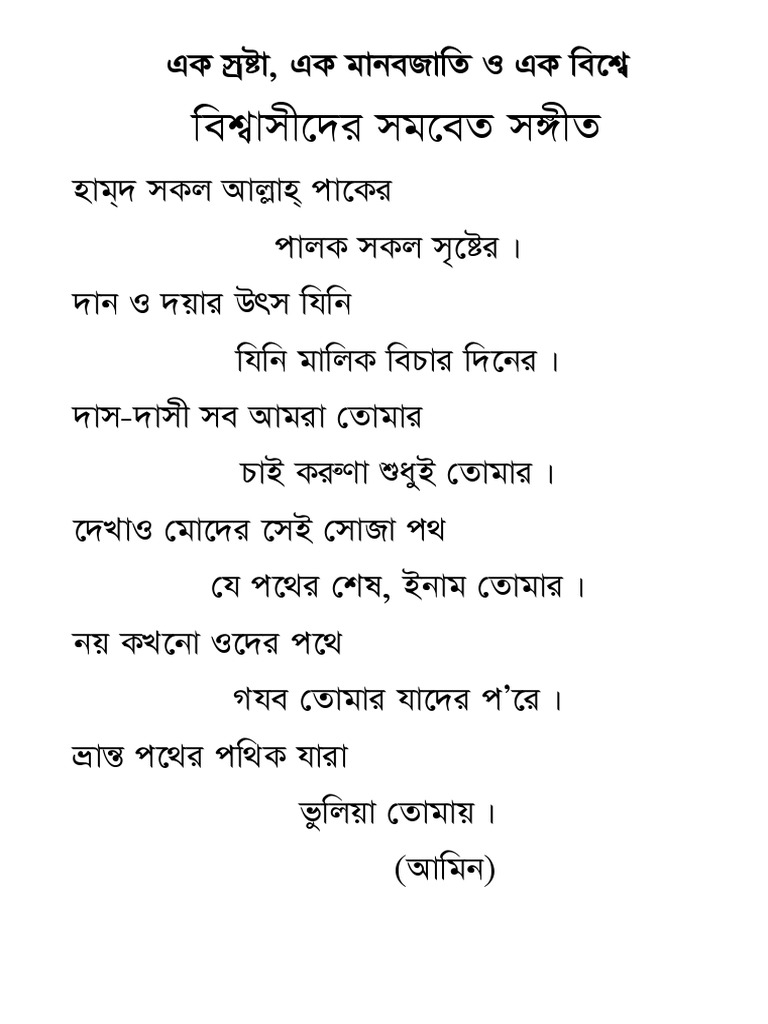 এক স্রষ্টা, এক মানবজাতি ও এক বিশ্বে
বিশ্বাসীদের সমবেত সঙ্গীত
হাম্‌দ সকল আল্লাহ্‌ পাকের
পালক সকল সৃষ্টের ।
দান ও দয়ার উৎস যিনি
যিনি মালিক বিচার দিনের ।
দাস-দাসী সব আমরা তোমার
চাই করুণা শুধুই তোমার ।
দেখাও মোদের সেই সোজা পথ
যে পথের শেষ, ইনাম তোমার ।
নয় কখনো ওদের পথে
গযব তোমার যাদের প’রে ।
ভ্রান্ত পথের পথিক যারা
ভুলিয়া তোমায় ।
(আমিন)